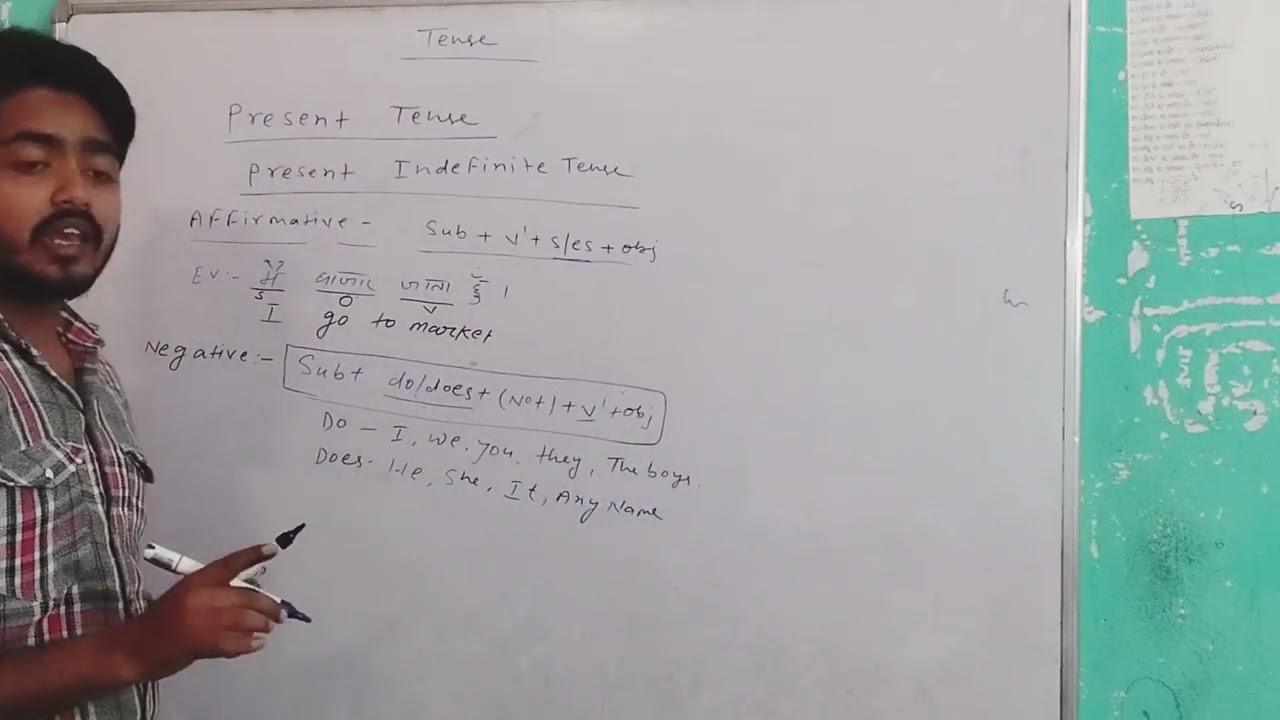 Tense
Present Tense
Present Indefinite Tense
Affirmative - Sub + V' + s/es + obj
Ex:- मैं बाजार जाता हूँ ।
S O V
I go to market
Negative:- Sub + do/does + (Not) + V' + obj
Do - I, we, you, they, The boys.
Does - He, She, It, Any Name